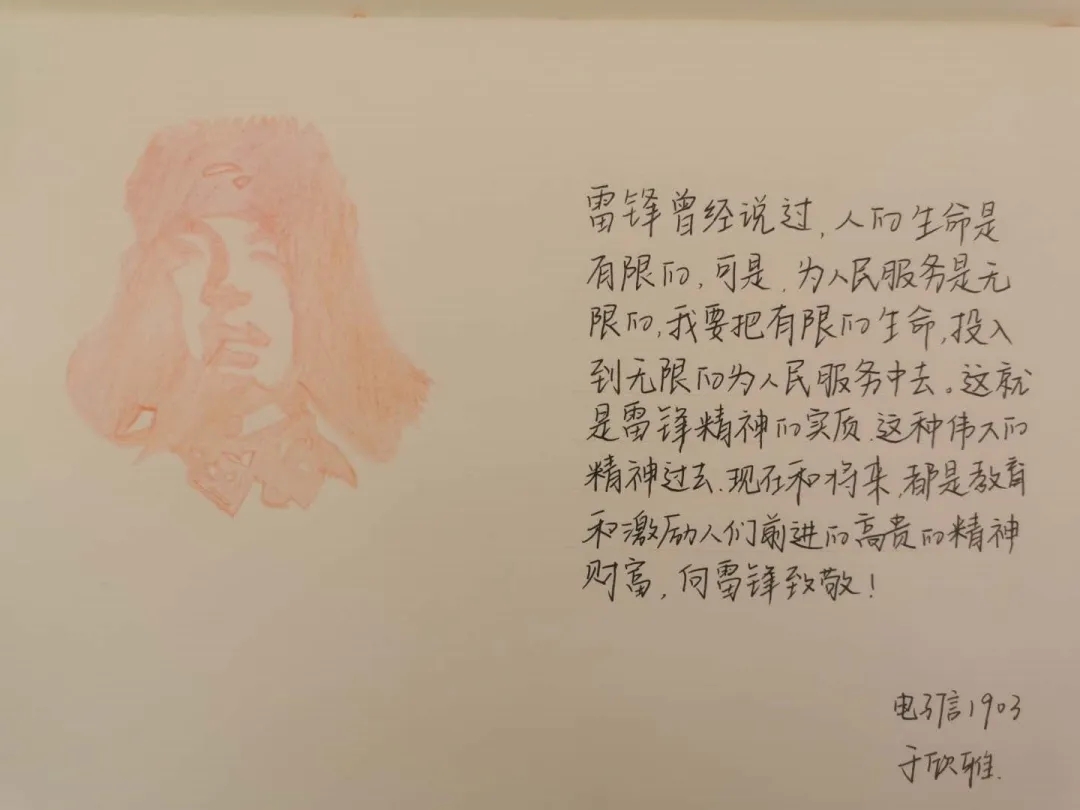 雷锋曾经说过,人的生命是
有限的,可是,为人民服务是无
限的,我要把有限的生命,投入
到无限的为人民服务中去。这就
是雷锋精神的实质.这种伟大的
精神过去.现在和将来,都是教育
和激励人们前进的高贵的精神
财富,向雷锋致敬!
电子信1903
于欣雅.